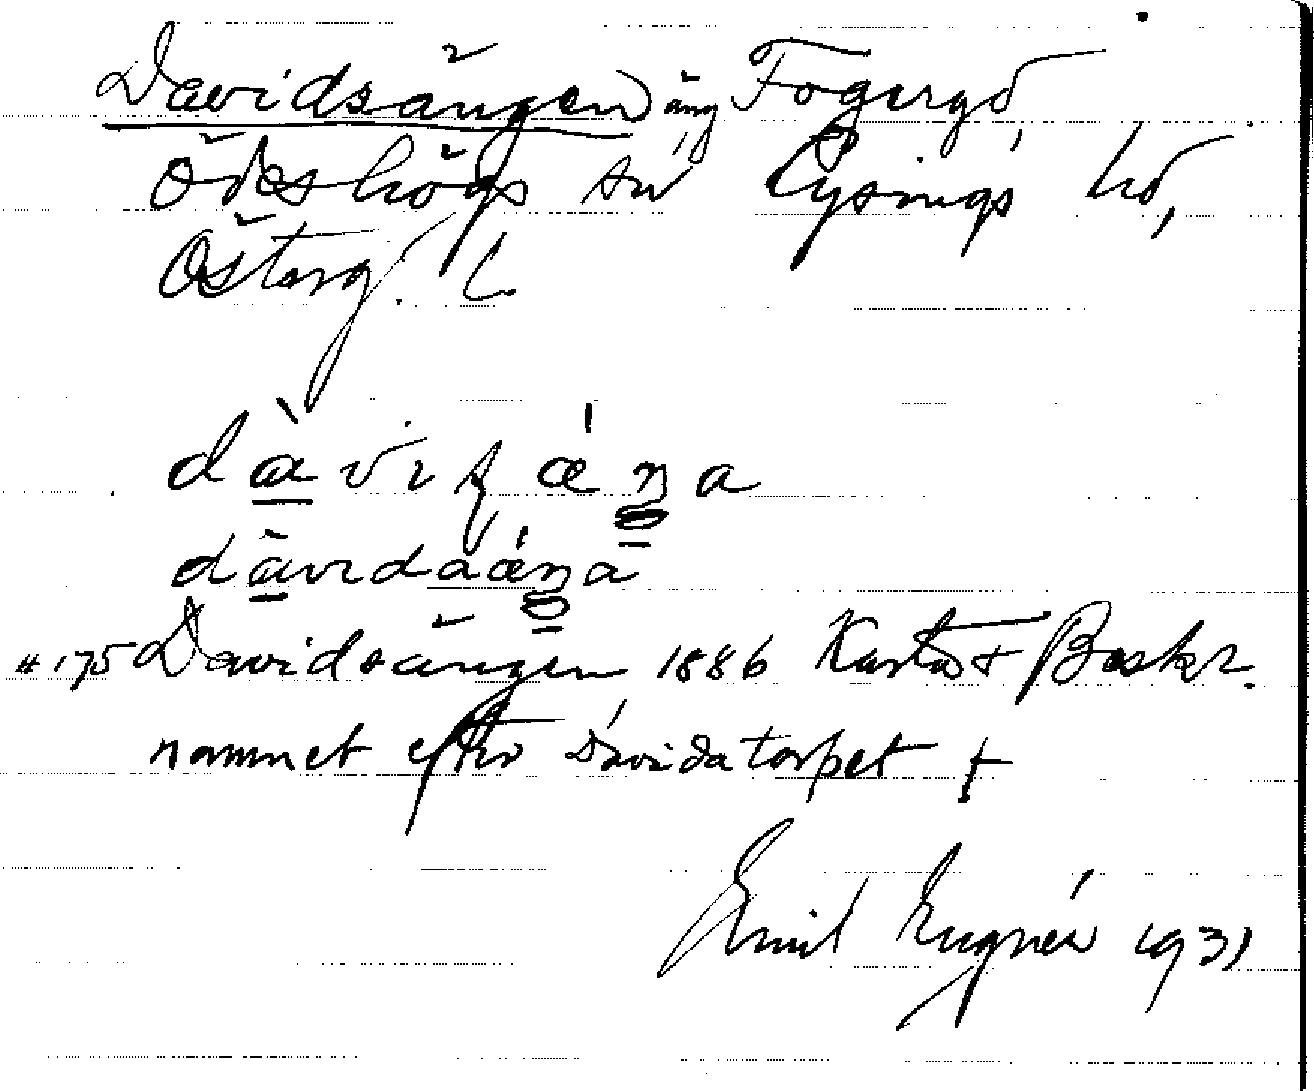 Davidsängen äng Fogergd
Ödeshögs sn Lysings hd,
Österg. L.
dàvɪsǽŋa
dàvɪdaǽŋa
# 175 Davidsängen 1886 Karta + Beskr.
namnet efter Davidatorpet †
Emil Eugnér 1931